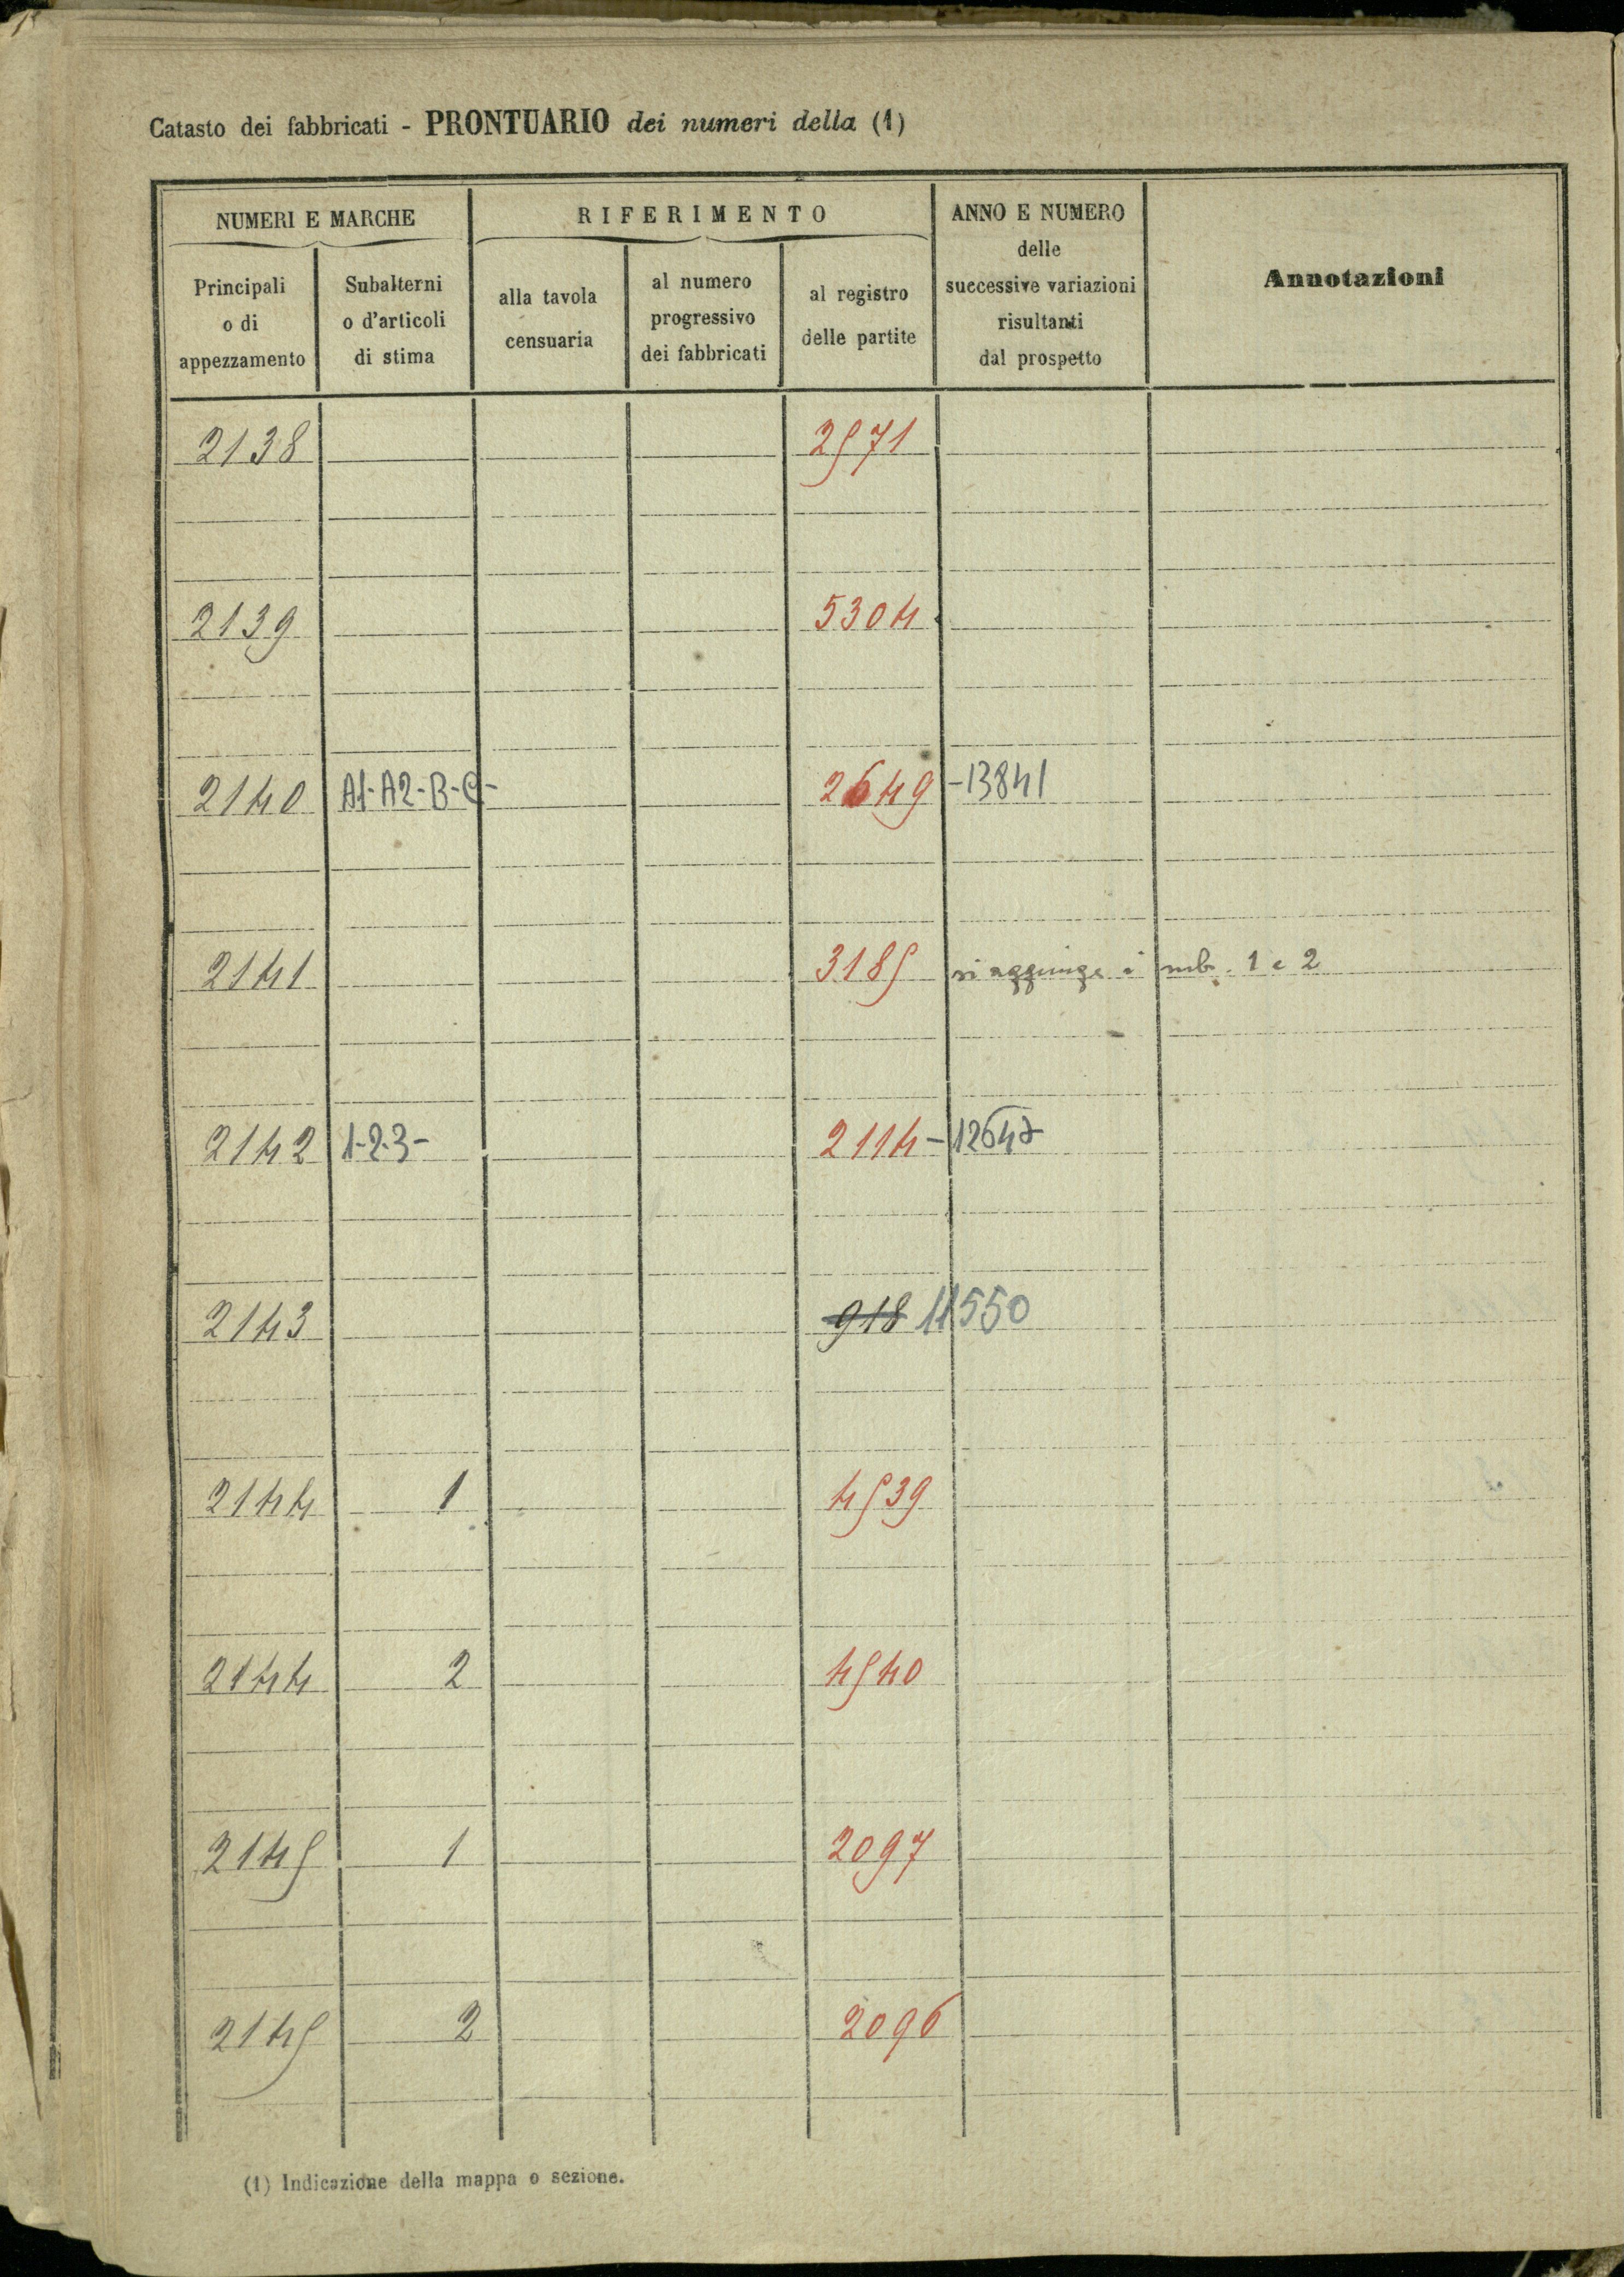 Catasto dei fabbricati - PRONTUARIO dei numeri della (1)
NUMERI E MARCHE
RIFERIMENTO
ANNO E NUMERO
delle
successive variazioni
risultanti
dal prospetto
Annotazioni
Principali
o di
appezzamento
Subalterni
o d'articoli
di stima
alla tavola
censuaria
al numero
progressivo
dei fabbricati
al registro
delle partite
2138 2571
2139 5304
2140 A1-A2-B-C- 2649 -13841
2141 3185 si aggiunge i sub. 1 e 2
2142 1-2-3- 2114-
2143 918 11550
2144 1 4539
2144 2 4540
2145 1 2097
2145 2 2096
(1) Indicazione della mappa o sezione.